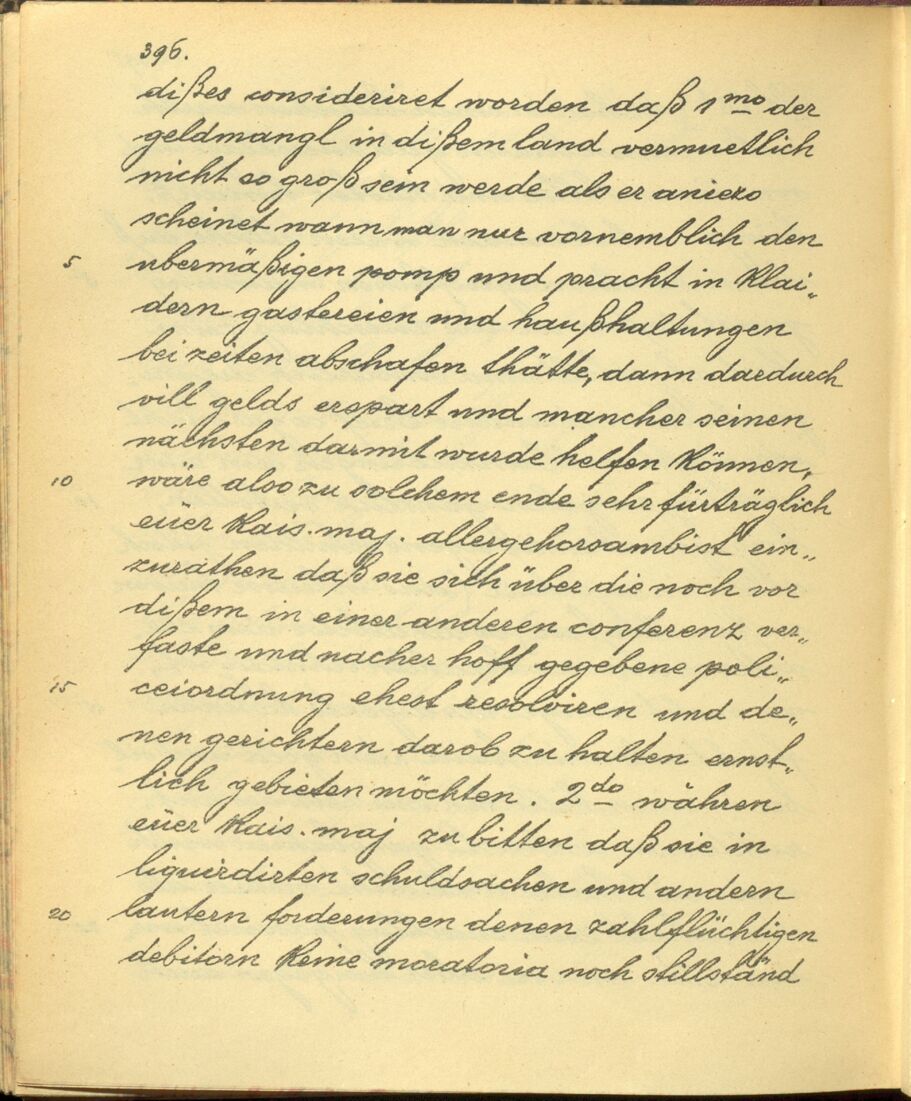 396.
dißes consideriret worden daß 1mo der
geldmangl in dißem land vermuetlich
nicht so groß sein werde als er aniezo
scheinet wann man nur vornemblich den
5 ubermäßigen pomp und pracht in Klai„
dern gastereien und haußhaltungen
bei zeiten abschafen thätte, dann dardurch
vill gelds erspart und mancher seinen
nächsten darmit wurde helfen Können,
10 wäre also zu solchem ende sehr fürträglich
eüer Kais. maj. allergehorsambist ein„
zurathen daß sie sich über die noch vor
dißem in einer anderen conferenz ver„
faste und nacher hoff gegebene poli„
15 ceiordnung ehest resolviren und de„
nen gerichtern darob zu halten ernst„
lich gebieten möchten. 2do währen
eüer Kais. maj zu bitten daß sie in
liquirdirten schuldsachen und andern
20 lautern forderungen denen zahlflüchtigen
debitorn Keine moratoria noch stillständ